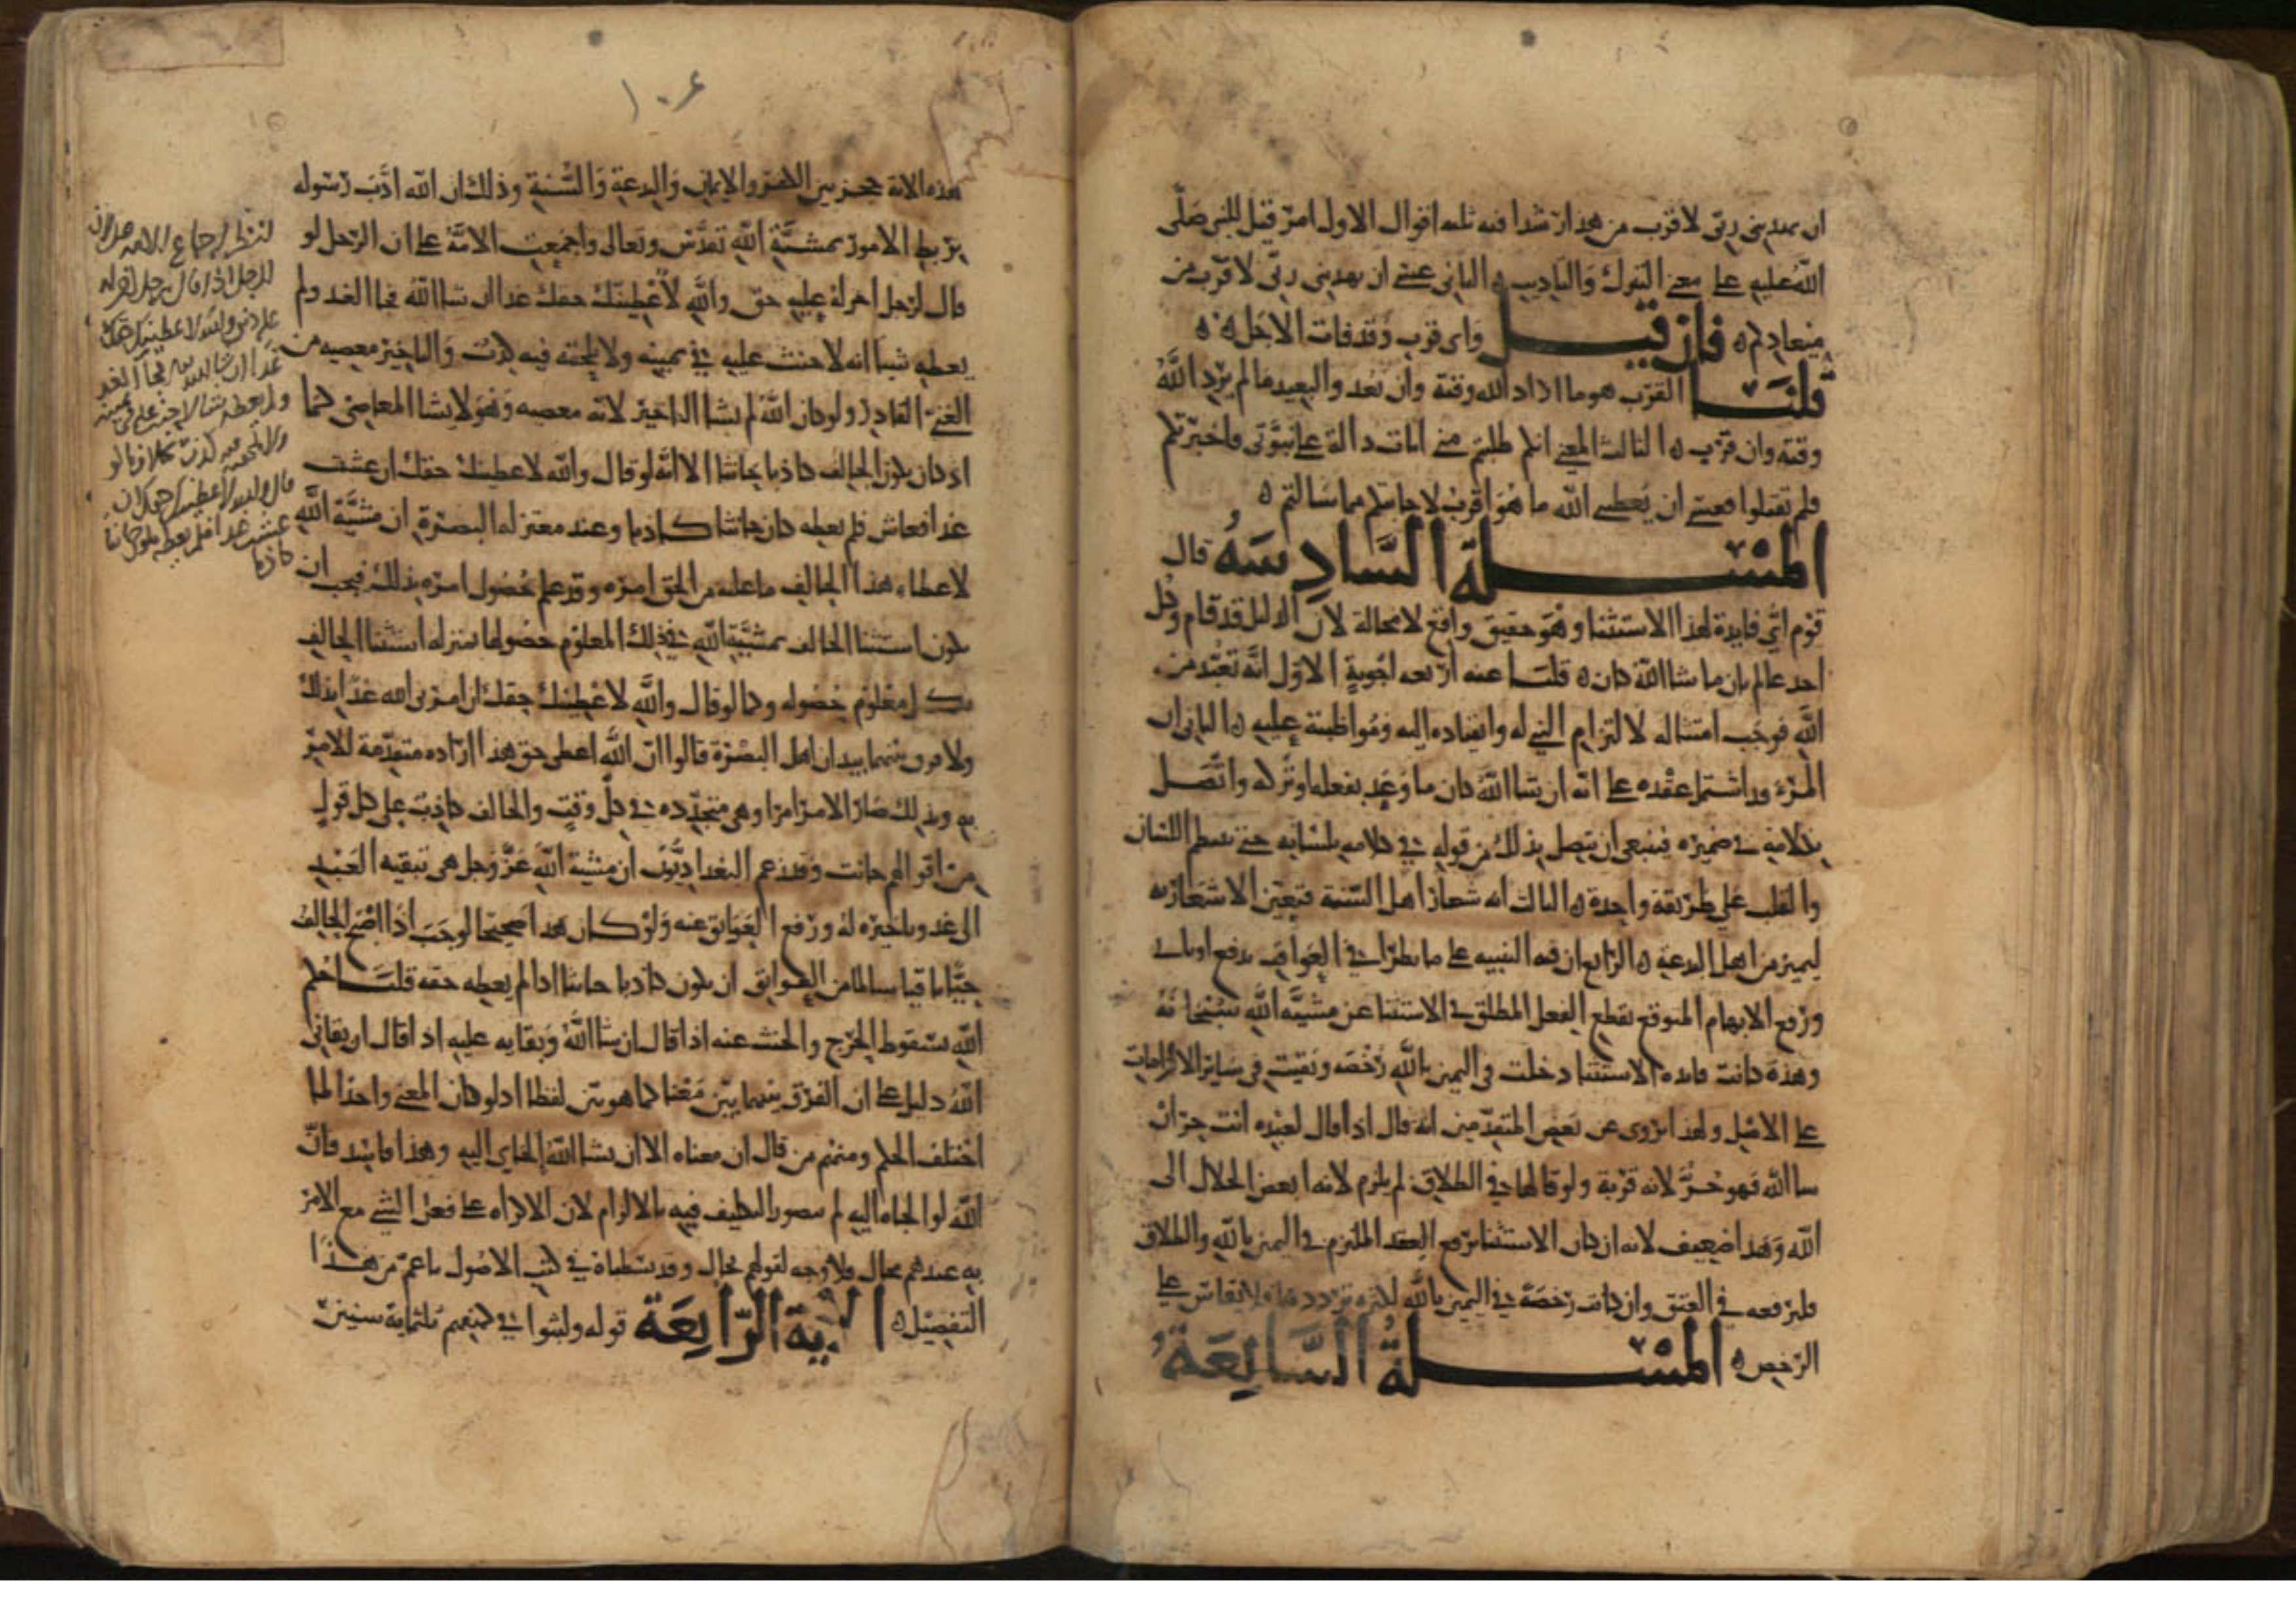 ان يهديني ربي لاقرب من هذا رشدا فيه ثلثه اقوال الاول امر قيل للنبي صلى
الله عليه على معنى التبرك والتاديب الثاني عسى ان يهديني ربي لاقرب من
ميعادكم فان قيل واي قرب وقد فات الاجل
قلنا القرب هو ما اراد الله وقته وان بعد والبعيد ما لم يرد الله
وقته وان قرب الثالث المعنى انكم طلبتم مني ايات دالة على نبوتي فاخبرتكم
فلم تقبلوا فعسى ان يعطيني الله ما هو اقرب لاجابتكم مما سالتم
المسلة السادسة قال
قوم اي فايدة لهذا الاستثنا وهو حقيق واقع لا محالة لان الدليل قد قام وكل
احد عالم بان ما شا الله كان قلنا عنه اربعه اجوبة الاول انه تعبد من
الله فوجب امتثاله لالتزام النبي له وانقياده اليه ومواظبته عليه الثاني ان
المرء قد اشتمل عقده على انه ان شا الله كان ما وعد بفعله او تركه واتصل
بكلامه في ضميره فينبغي ان يتصل بذلك من قوله في كلامه بلسانه حتى ينتظم اللسان
والقلب على طريقة واحدة الثالث انه شعار اهل السنة فتعين الاشعار به
ليميز من اهل البدعة الرابع ان فيه التنبيه على ما يطرا في العواقب بدفع او تاتي
ورفع الابهام المتوقع بقطع الفعل المطلق في الاستثنا عن مشية الله سبحانه
وهذه كانت فايدة الاستثنا دخلت في اليمين بالله رخصه وبقيت في ساير الالتزامات
على الاصل ولهذا يروى عن بعض المتقدمين انه قال اذا قال لعبده انت حر ان
شا الله فهو حر لانه قربة ولو قالها في الطلاق لم يلزم لانه ابغض الحلال الى
الله وهذا ضعيف لانه ان كان الاستثنا يرفع العقد الملتزم في اليمين بالله والطلاق
فليرفعه في العتق وان كانت رخصة في اليمين بالله لكثره ترددها فلا يقاس على
الرخص المسلة السابعة
هذه الاية حجز بين الكفر والايمان والبدعة والسنة وذلك ان الله ادب رسوله
بربط الامور بمشية الله تقدس وتعالى واجمعت الامة على ان الرجل لو
قال لرجل اخر له عليه حق والله لاعطينك حقك غدا ان شا الله فجا الغد ولم
يعطه شيا انه لا حنث عليه في يمينه ولا يلحقه فيه كذب والتاخير معصيه من
الغني القادر ولو كان الله لم يشا التاخير لانه معصيه وهو لا يشا المعاصي كما
اذ كان يكون الحالف كاذبا حانثا الا انه لو قال والله لاعطينك حقك ان عشت
غدا فعاش فلم يعطه كان حانثا كاذبا وعند معتزله البصرة ان مشية الله
لاعطاء هذا الحالف ما عليه من الحق امره وقد علم حصول امره بذلك فيجب ان
يكون استثنا الحالف بمشية الله في ذلك المعلوم حصولها بمنزله استثنا الحالف
بكل معلوم حصوله وكما لو قال والله لاعطينك حقك ان امرني الله غدا بذلك
ولا فرق بينهما بيد ان اهل البصرة قالوا ان الله اعطى حق هذا ارادة متقدمة للامر
به وبذلك صار الامر امرا وهي متجدده في كل وقت والحالف كاذب على كل قول
من اقوالهم حانث وقد زعم البغداديون ان مشية الله عز وجل هي تبقيه العبد
الى غد وتاخيره له ورفع العوايق عنه ولو كان هذا صحيحا لوجب اذا اصبح الحالف
حيا باقيا سالما من العوايق ان يكون كاذبا حانثا اذا لم يعطه حقه قلنا حكم
الله بسقوط الحرج والحنث عنه اذا قال ان شا الله وبقايه عليه اذ اقال ان بقاني
الله دليل على ان الفرق بينهما بين معنا كما هو بين لفظا اذ لو كان المعنى واحدا لما
اختلف الحكم ومنهم من قال ان معناه الا ان يشا الله الجاي اليه وهذا فاسد فان
الله لو الجاه اليه لم يتصور التكليف فيه بالالزام لان الاكراه على فعل الشي مع الامر
به عندهم محال فلا وجه لقولهم بحال وقد بسطناه في كتب الاصول باعم من هذا
التفصيل الاية الرابعة قوله ولبثوا في كهفهم ثلثماية سنين
١٠٤
انظر اجماع الامة على ان
الرجل اذا قال لرجل اخر له
عليه دين والله لاعطينك حقك
غدا ان شا الله فجا الغد
ولم يعطه شيا لا حنث عليه في يمينه
ولا يلحقه فيه كذب بخلاف ما لو
قال والله لاعطينك حقك ان
عشت غدا فلم يعطه يكون حانثا
كاذبا